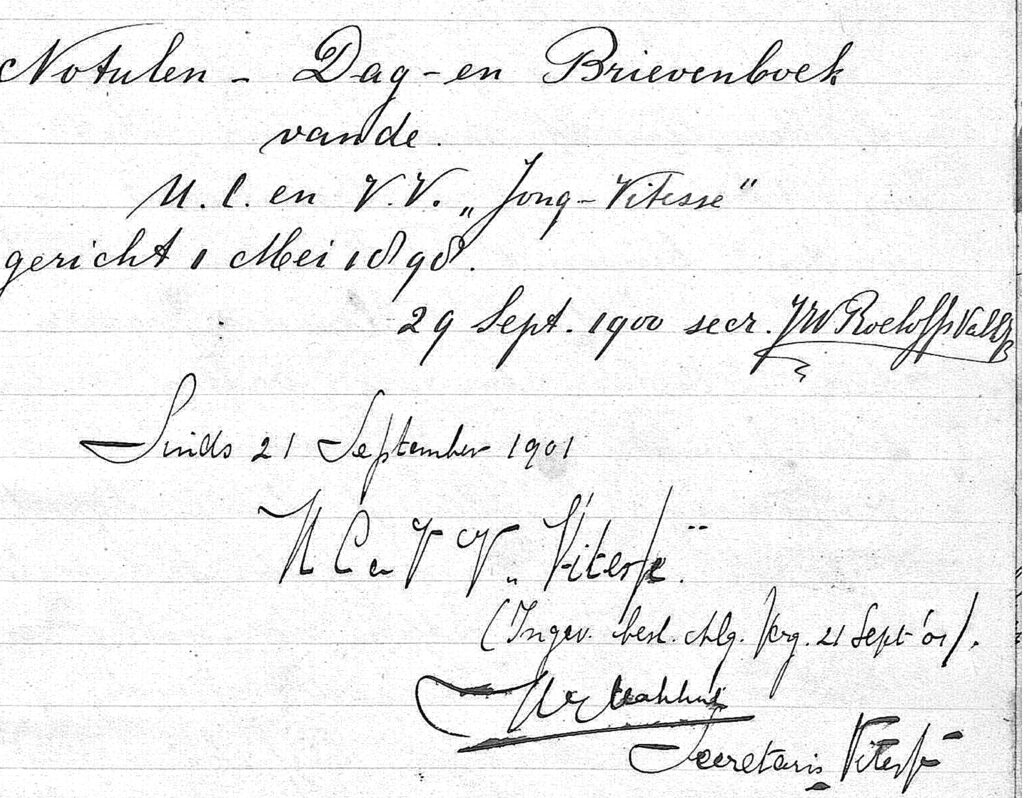 Notulen - Dag - en Brievenboek
van de
N. C. en V. V. „Jong-Vitesse"
gericht 1 Mei 1898.
29 Sept. 1900 secr. JW Roeloffs Valk
Sinds 21 September 1901
N C en V V „Vitesse"
(Ingev. besl. Alg. Verg. 21 Sept '01).
Secretaris Vitesse